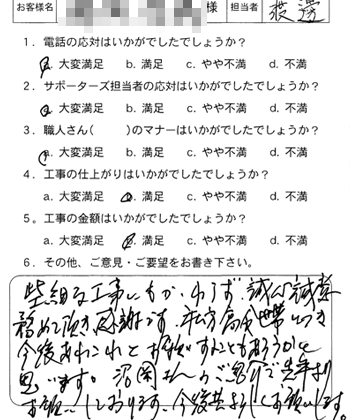 お客様名 様 担当者 渡邊
1．電話の応対はいかがでしたでしょうか？
a. 大変満足 b. 満足 c. やや不満 d. 不満
2．サポーターズ担当者の応対はいかがでしたでしょうか？
a. 大変満足 b. 満足 c. やや不満 d. 不満
3．職人さん（ ）のマナーはいかがでしたでしょうか？
a. 大変満足 b. 満足 c. やや不満 d. 不満
4．工事の仕上がりはいかがでしたでしょうか？
a. 大変満足 b. 満足 c. やや不満 d. 不満
5。工事の金額はいかがでしたでしょうか？
a. 大変満足 b. 満足 c. やや不満 d. 不満
6．その他、ご意見・ご要望をお書き下さい。
些細な工事にもかかわらず、誠心誠意
務めて頂き感謝です。
今後あれこれとお願いすることもあろうかと
思います。
お願いしております。今後共よろしくお願いします。